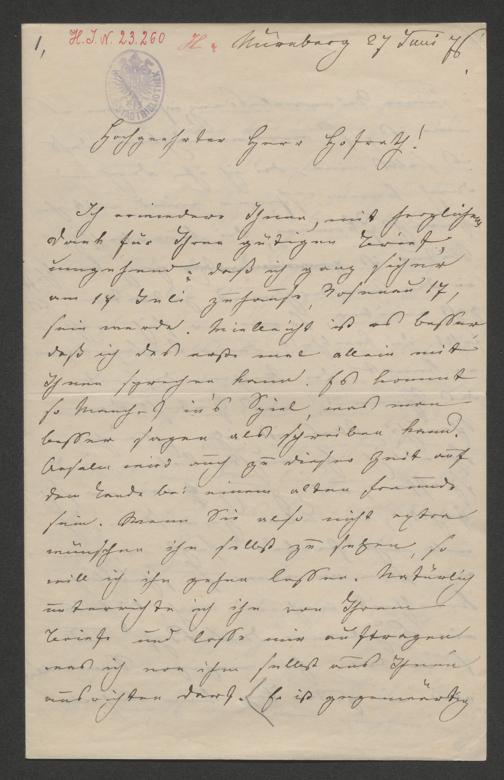 1,
H.I.N. 23.260
Nürnberg 27 Juni 76.
STADTBIBLIOTHEK
Hochgeehrter Herr Hofrath!
Ich erwiedere Ihnen, mit herzlichem
Dank für Ihren gütigen Brief,
umgehend: daß ich ganz sicher
am 14 Juli zuhause, Rosenau 17,
sein werde. Vielleicht ist es besser,
daß ich das erste mal allein mit
Ihnen sprechen kann. Es kommt
so Manches in's Spiel, was man
besser sagen als schreiben kann.
wird auch zu dieser Zeit auf
dem Lande bei einem alten Freunde
sein. Wenn Sie also nicht extra
wünschen ihn selbst zu sehen, so
will ich ihn gehen lassen. Natürlich
unterrichte ich ihn von Ihrem
Briefe und lasse mir auftragen
was ich von ihm selbst aus Ihnen
ausrichten darf. Er ist gegenwärtig